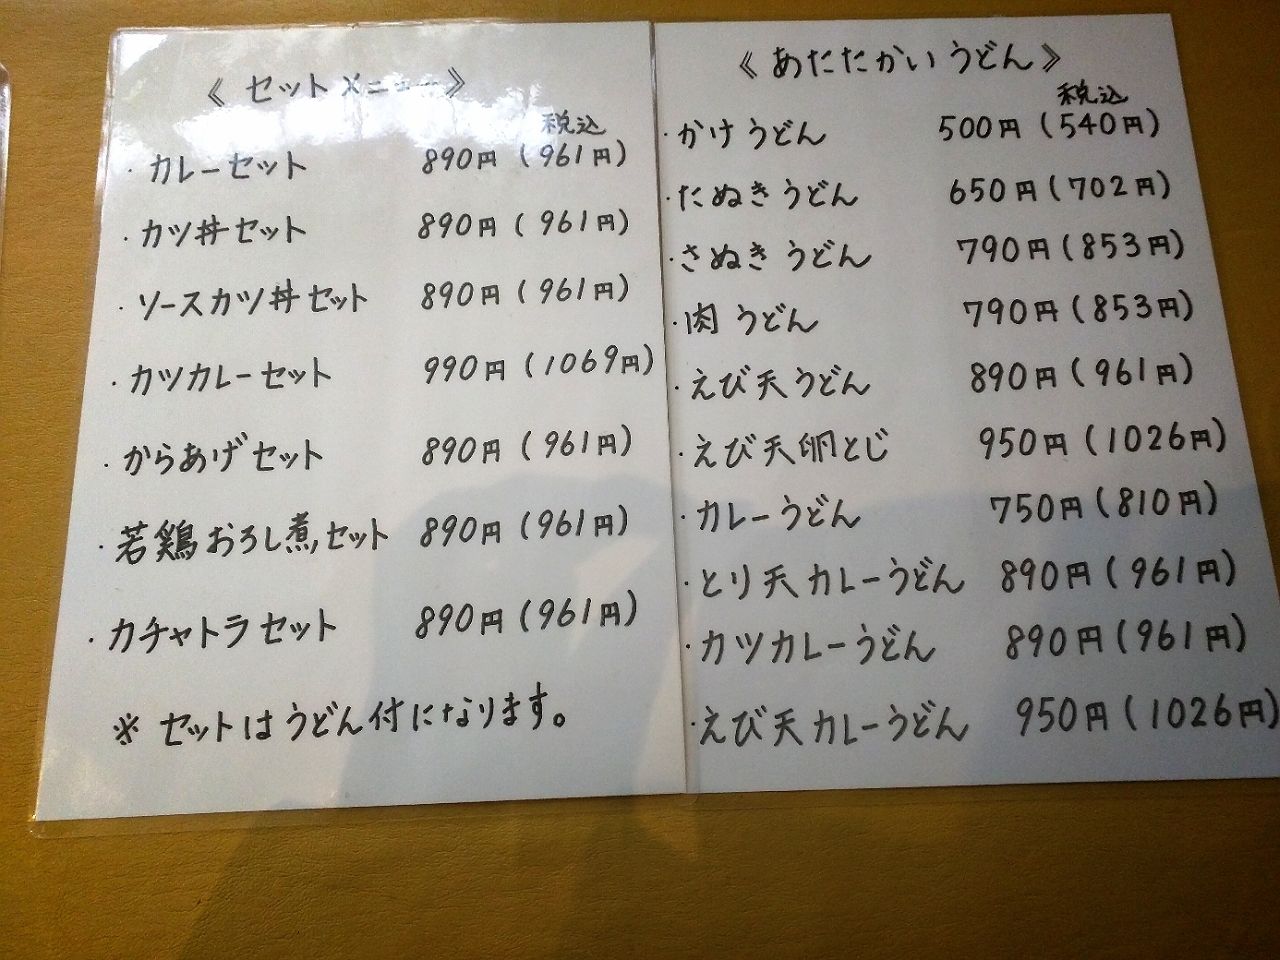 《 セットメニュー 》
税込
・カレーセット 890円(961円)
・カツ丼セット 890円(961円)
・ソースカツ丼セット 890円(961円)
・カツカレーセット 990円(1069円)
・からあげセット 890円(961円)
・若鶏おろし煮セット 890円(961円)
・カチャトラセット 890円(961円)
※ セットはうどん付になります。
《 あたたかいうどん 》
税込
・かけうどん 500円(540円)
・たぬきうどん 650円(702円)
・さぬきうどん 790円(853円)
・肉うどん 790円(853円)
・えび天うどん 890円(961円)
・えび天卵とじ 950円(1026円)
・カレーうどん 750円(810円)
・とり天カレーうどん 890円(961円)
・カツカレーうどん 890円(961円)
・えび天カレーうどん 950円(1026円)